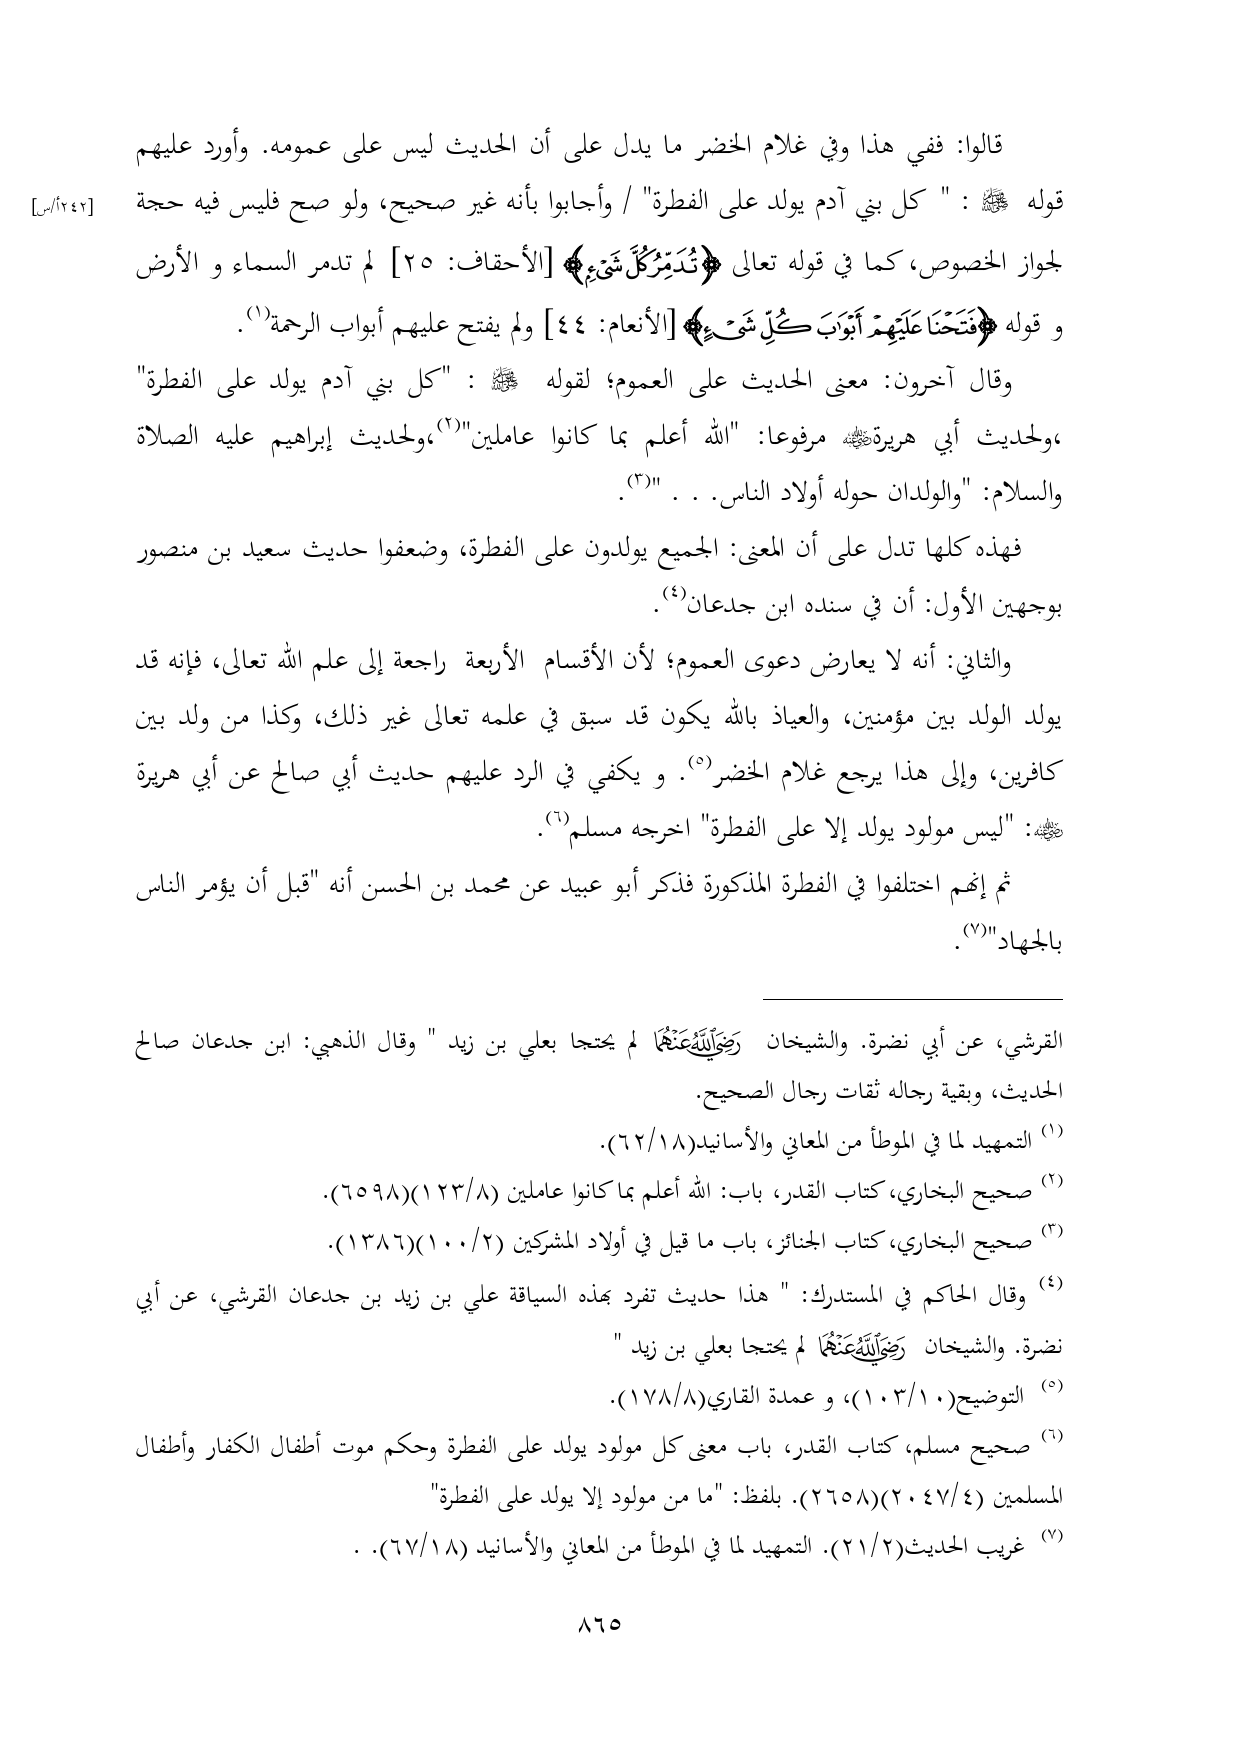 قالوا: ففي هذا وفي غلام الخضر ما يدل على أن الحديث ليس على عمومه. وأورد عليهم
قوله ﷺ : " كل بني آدم يولد على الفطرة" / وأجابوا بأنه غير صحيح، ولو صح فليس فيه حجة
[٢٤٢أ/س]
لجواز الخصوص، كما في قوله تعالى ﴿تُدَمِّرُ كُلَّ شَيْءٍ﴾ [الأحقاف: ٢٥] لم تدمر السماء و الأرض
و قوله ﴿فَتَحْنَا عَلَيْهِمْ أَبْوَابَ كُلِّ شَيْءٍ﴾ [الأنعام: ٤٤] ولم يفتح عليهم أبواب الرحمة(١).
وقال آخرون: معنى الحديث على العموم؛ لقوله ﷺ : "كل بني آدم يولد على الفطرة"
،ولحديث أبي هريرة﵁ مرفوعا: "الله أعلم بما كانوا عاملين"(٢)،ولحديث إبراهيم عليه الصلاة
والسلام: "والولدان حوله أولاد الناس. . . "(٣).
فهذه كلها تدل على أن المعنى: الجميع يولدون على الفطرة، وضعفوا حديث سعيد بن منصور
بوجهين الأول: أن في سنده ابن جدعان(٤).
والثاني: أنه لا يعارض دعوى العموم؛ لأن الأقسام الأربعة راجعة إلى علم الله تعالى، فإنه قد
يولد الولد بين مؤمنين، والعياذ بالله يكون قد سبق في علمه تعالى غير ذلك، وكذا من ولد بين
كافرين، وإلى هذا يرجع غلام الخضر(٥). و يكفي في الرد عليهم حديث أبي صالح عن أبي هريرة
﵁: "ليس مولود يولد إلا على الفطرة" اخرجه مسلم(٦).
ثم إنهم اختلفوا في الفطرة المذكورة فذكر أبو عبيد عن محمد بن الحسن أنه "قبل أن يؤمر الناس
بالجهاد"(٧).
القرشي، عن أبي نضرة. والشيخان رَضِيَ اللَّهُ عَنْهُمَا لم يحتجا بعلي بن زيد " وقال الذهبي: ابن جدعان صالح
الحديث، وبقية رجاله ثقات رجال الصحيح.
(١) التمهيد لما في الموطأ من المعاني والأسانيد(٦٢/١٨).
(٢) صحيح البخاري، كتاب القدر، باب: الله أعلم بما كانوا عاملين (١٢٣/٨)(٦٥٩٨).
(٣) صحيح البخاري، كتاب الجنائز، باب ما قيل في أولاد المشركين (١٠٠/٢)(١٣٨٦).
(٤) وقال الحاكم في المستدرك: " هذا حديث تفرد بهذه السياقة علي بن زيد بن جدعان القرشي، عن أبي
نضرة. والشيخان رَضِيَ اللَّهُ عَنْهُمَا لم يحتجا بعلي بن زيد "
(٥) التوضيح(١٠٣/١٠)، و عمدة القاري(١٧٨/٨).
(٦) صحيح مسلم، كتاب القدر، باب معنى كل مولود يولد على الفطرة وحكم موت أطفال الكفار وأطفال
المسلمين (٢٠٤٧/٤)(٢٦٥٨). بلفظ: "ما من مولود إلا يولد على الفطرة"
(٧) غريب الحديث(٢١/٢). التمهيد لما في الموطأ من المعاني والأسانيد (٦٧/١٨). .
٨٦٥